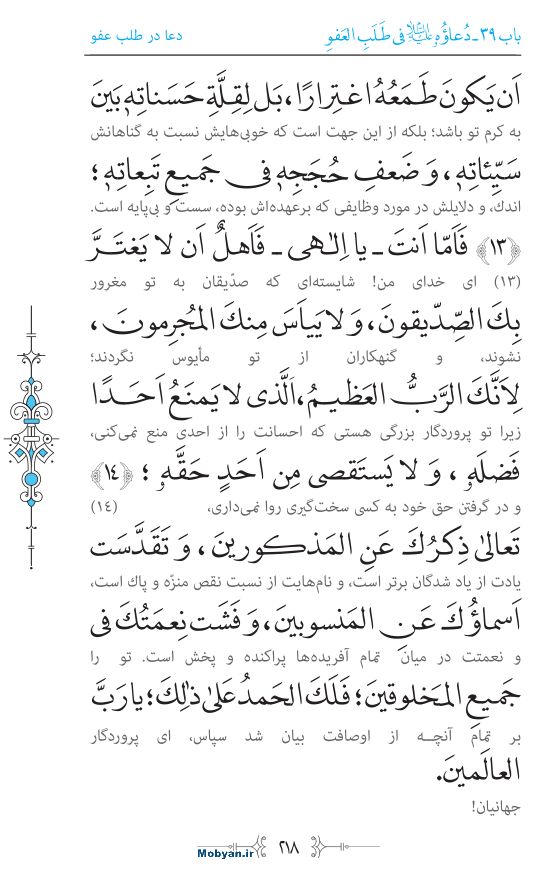 باب ۳۹ـ دُعاؤُهُ علیه‌السلام فی طَلَبِ العَفوِ
دعا در طلب عفو
اَن یَکونَ طَمَعُهُ اغتِرارًا، بَل لِقِلَّةِ حَسَناتِهٖ بَینَ
به کرم تو باشد؛ بلکه از این جهت است که خوبی‌هایش نسبت به گناهانش
سَیِّئاتِهٖ، وَ ضَعفِ حُجَجِهٖ فی جَمیعِ تَبِعاتِهٖ؛
اندك، و دلایلش در مورد وظایفی که برعهده‌اش بوده، سست و بی‌پایه است.
﴿۱۳﴾ فَاَمّا اَنتَ ـ یا اِلٰهی ـ فَاَهلٌ اَن لا یَغتَرَّ
(۱۳) ای خدای من! شایسته‌ای که صدّیقان به تو مغرور
بِكَ الصِّدّیقونَ، وَ لا یَیاَسَ مِنكَ المُجرِمونَ،
نشوند، و گنهکاران از تو مأیوس نگردند؛
لِاَنَّكَ الرَّبُّ العَظیمُ، اَلَّذی لا یَمنَعُ اَحَدًا
زیرا تو پروردگار بزرگی هستی که احسانت را از احدی منع نمی‌کنی،
فَضلَهٗ، وَ لا یَستَقصی مِن اَحَدٍ حَقَّهٗ؛ ﴿۱۴﴾
و در گرفتن حق خود به کسی سخت‌گیری روا نمی‌داری، (۱٤)
تَعالیٰ ذِکرُكَ عَنِ المَذکورینَ، وَ تَقَدَّسَت
یادت از یاد شدگان برتر است، و نام‌هایت از نسبت نقص منزّه و پاك است،
اَسماؤُكَ عَنِ المَنسوبینَ، وَ فَشَت نِعمَتُكَ فی
و نعمتت در میان تمام آفریده‌ها پراکنده و پخش است. تو را
جَمیعِ المَخلوقینَ؛ فَلَكَ الحَمدُ عَلیٰ ذٰلِكَ؛ یا رَبَّ
بر تمام آنچه از اوصافت بیان شد سپاس، ای پروردگار
العالَمینَ.
جهانیان!
۲۱۸
Mobyan.ir